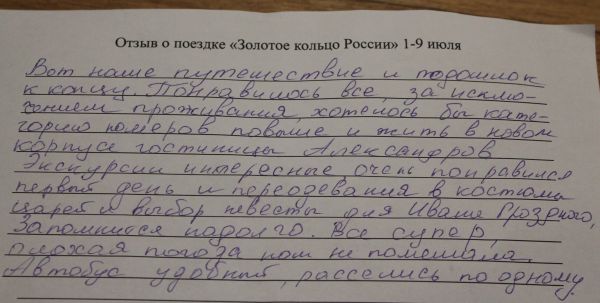 Отзыв о поездке «Золотое кольцо России» 1-9 июля
Вот наше путешествие и подошло
к концу. Понравилось все, за исклю-
чением проживания, хотелось бы кате-
горию номеров повыше и жить в новом
корпусе гостиницы Александров
Экскурсии интересные, очень понравился
первый день и переодевания в костюмы
царей и выбор невесты для Ивана Грозного,
Запомнится надолго. Все супер,
плохая погода нам не помешала.
Автобус удобный, расселись по одному.